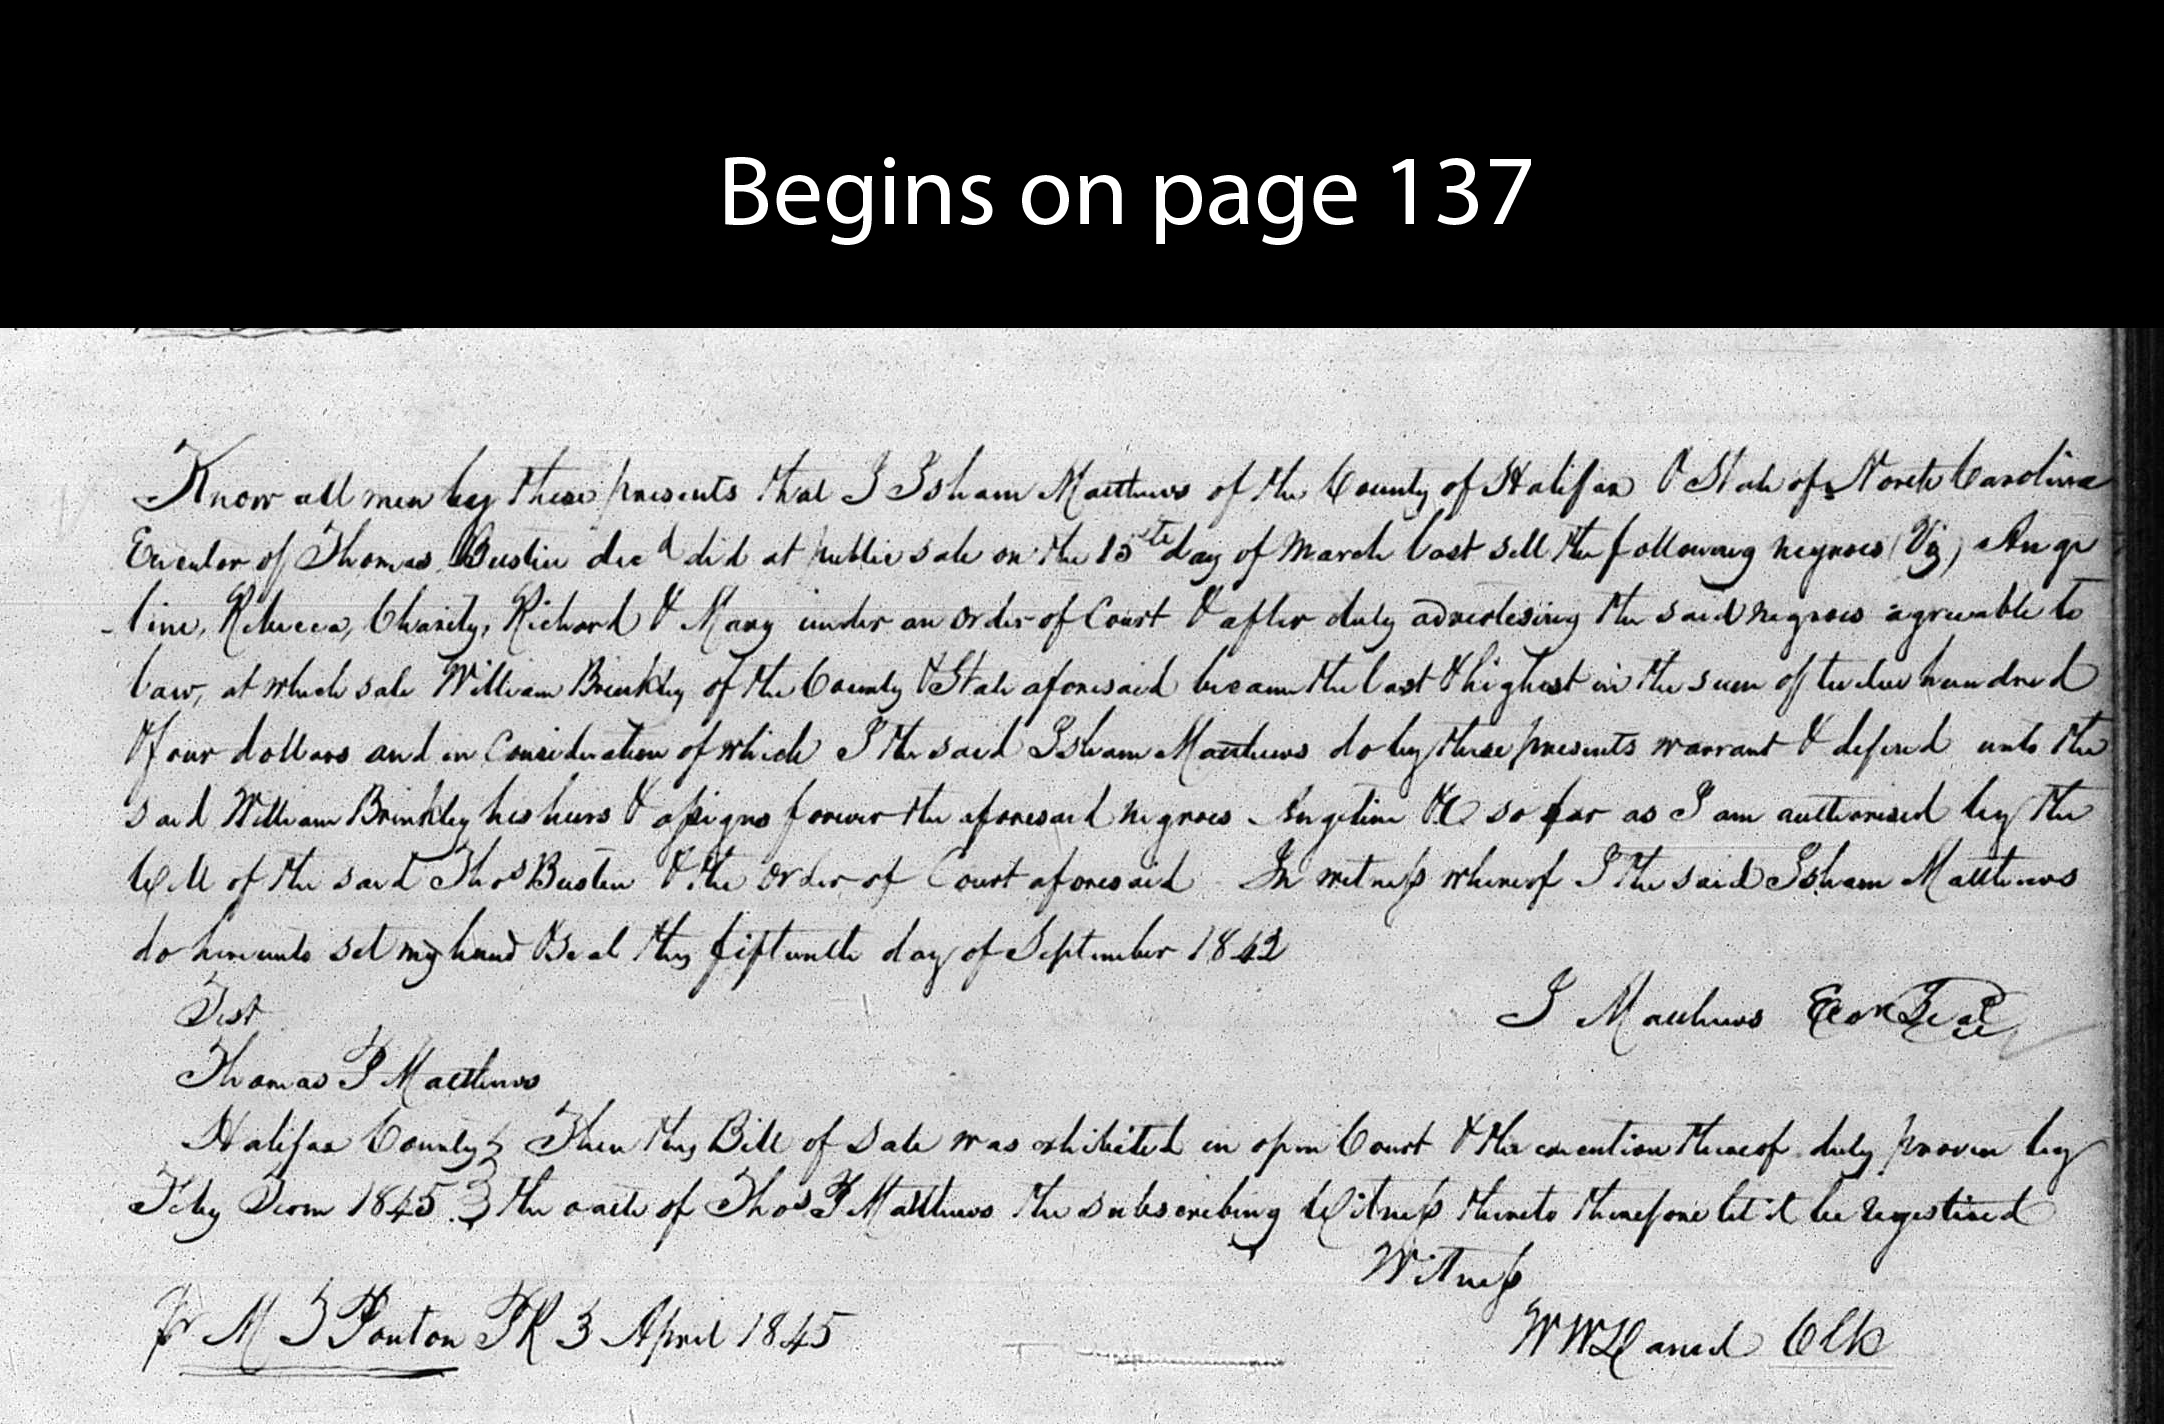 Begins on page 137
Know all men by these presents that I Isham Matthews of the County of Halifax & State of North Carolina
Executor of Thomas Bustin decd did at public sale on the 15th day of March last sell the following negroes (Viz) Ange
line, Rebecca, Charity, Richard & Mary under an order of Court & after duly advertising the said negroes agreeable to
law, at which sale William Brinkley of the County & State aforesaid became the last & highest in the sum of twelve hundred
& four dollars and in consideration of which I the said Isham Matthews do by these presents warrant & defend unto the
said William Brinkley his heirs & assigns forever the aforesaid negroes Angeline &C so far as I am authorised by the
Will of the said Thos Bustin & the order of Court aforesaid In witness whereof I the said Isham Matthews
do hereunto set my hand & Seal this fifteenth day of September 1842
Test
I Matthews Exor Seal
Thomas I Matthews
Halifax County } Then this Bill of Sale was exhibited in open Court & the execution thereof duly proven by
Feby Term 1845 } the oath of Thos I Matthews the subscribing Witness thereto therefore let it be registered
Witness
pr M T Ponton PR 3 April 1845
W W Daniel Clk